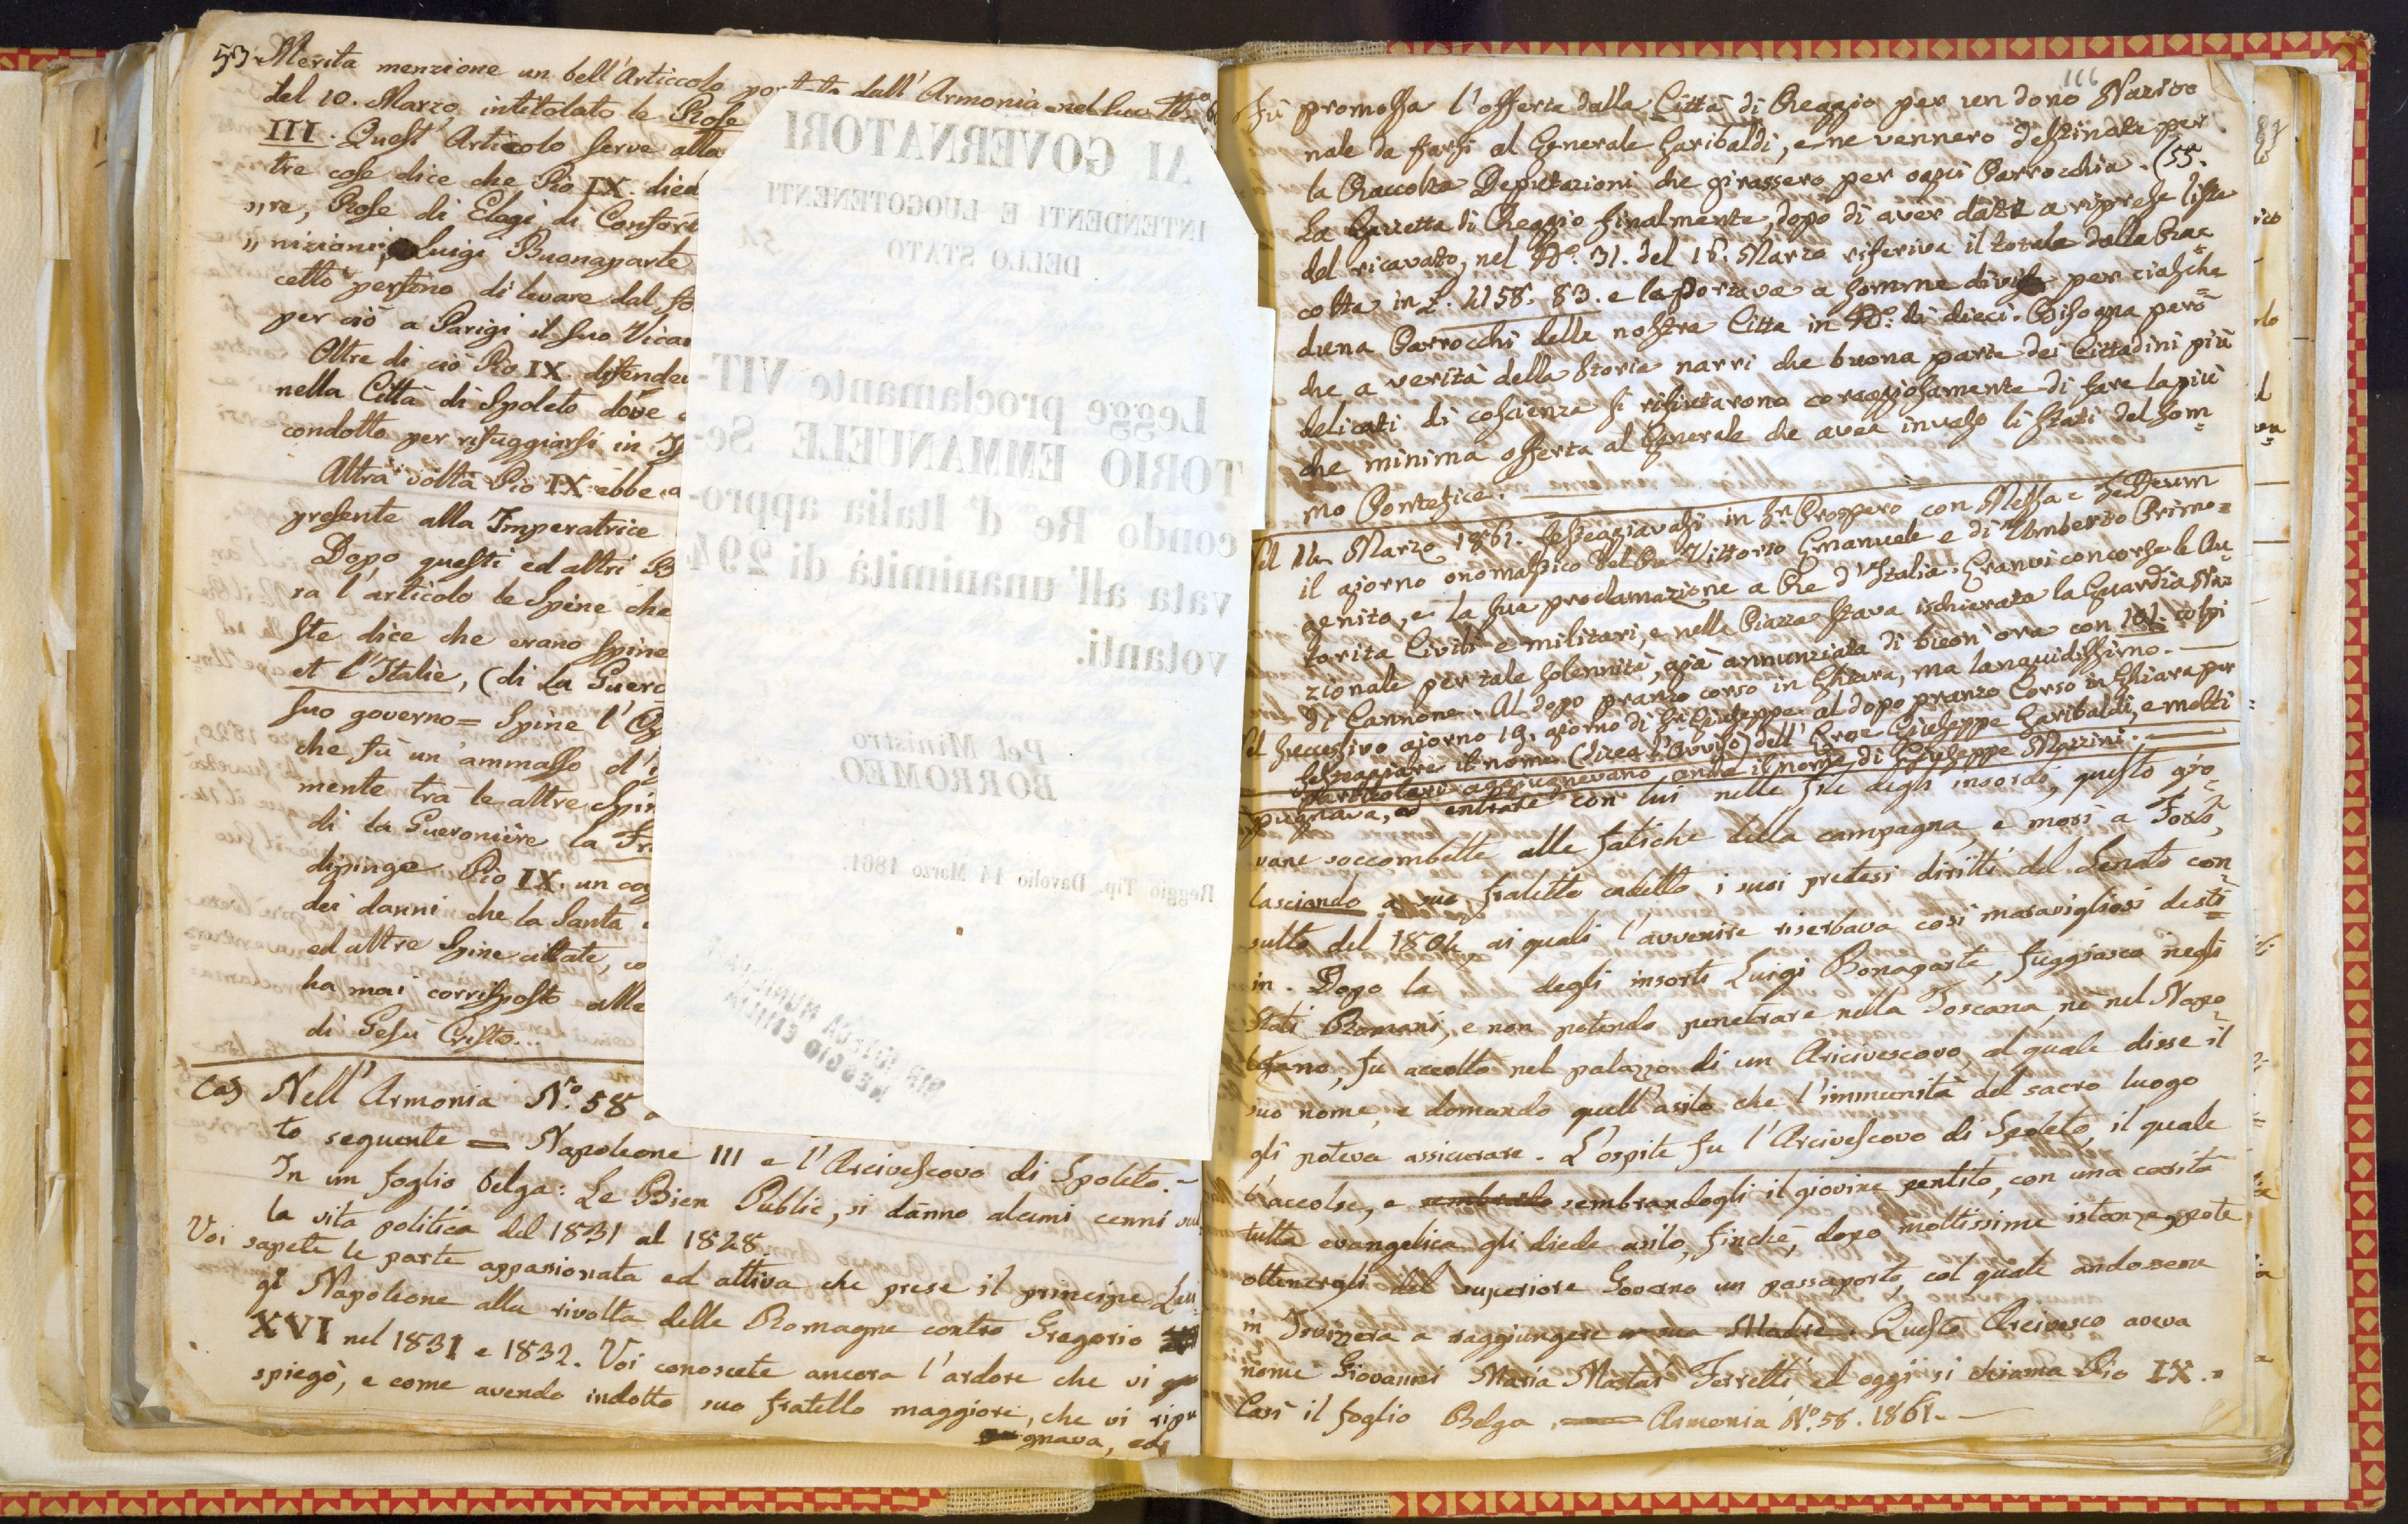 53. Merita menzione un bell'Articcolo portato dall'Armonia nel suo No 6
del 10. Marzo, intitolato le Rose
III. Quest'Articolo serve alla
tre cose dice che Pio IX. died
„re, Rose di Elogi di Confor
„nizioni, Luigi Buonaparte
cettò persino di levare dal
per ciò a Parigi il suo Vica
Oltre di ciò Pio IX difende
nella Città di Spoleto dove
condotto per rifuggiarsi in
Altra volta Pio IX ebbe a
presente alla Imperatrice
Dopo questi ed altri
ra l'articolo le Spine che
ste dice che erano spine
et l'Italie, (di La Guer
suo governo = Spine l'
che fù un'ammasso d'
mente trà le altre Spin
di la Gueroniere la Fr
dipinge Pio IX. un
dei danni che la Santa
ed altre Spine citate, co
ha mai corrisposto alle
di Gesù Cristo...
(a) Nell'Armonia No. 58
to seguente = Napoleone III e l'Arcivescovo di Spoleto. -
In un foglio belga: Le Bien Public, si danno alcuni cenni sul
la vita politica del 1831 al 1828.
Voi sapete le parte appassionata ed attiva che prese il principe Lui
gi Napoleone alla rivolta delle Romagne contro Gregorio
XVI nel 1831 e 1832. Voi conoscete ancora l'ardore che vi
spiegò, e come avendo indotto suo fratello maggiore, che vi ripu
gnava, ed
AI GOVERNATORI
INTENDENTI E LUOGOTENENTI
DELLO STATO
Legge proclamante VIT-
TORIO EMMANUELE Se-
condo Re d'Italia appro-
vata all'unanimità di 294
votanti.
Pel Ministro
BORROMEO.
Reggio Tip. Davolio 14 Marzo 1861.
BIBLIOTECA MUNICIPALE
REGGIO EMILIA
166
Fù promossa l'offerta dalla Città di Reggio per un dono Nazio
nale da farsi al Generale Garibaldi, e ne vennero destinate per
la Raccolta Deputazioni che girassero per ogni Parrocchia. (55.
La Gazzetta di Reggio finalmente, dopo di aver date a riprese liste
del ricavato, nel No. 31. del 16. Marzo riferiva il totale della Rac
colta in L. 4158. 83. e la portava a somme divise per ciasche
duna Parrocchi della nostra Citta in No. di dieci. Bisogna però
che a verità della storia narri che buona parte dei Cittadini più
delicati di coscienza si rifiutarono coraggiosamente di fare la più
che minima offerta al Generale che avea invaso li Stati del Som
mo Pontefice.
Il 14 Marzo 1861. festeggiavasi in Sn. Prospero con Messa e Te Deum
il giorno onomastico del Re Vittorio Emanuele e di Umberto Primo=
genito, e la sua proclamazione a Re d'Italia. Eranvi concorse le Au
torità Civili e militari, e nella Piazza stava ischierata la Guardia Na
zionale per tale solennità, già annunziata di buon'ora con 101. colpi
di Cannone. Al dopo pranzo corso in Ghiara, ma languidissimo. -
Il successivo giorno 19. giorno di Sn. Giuseppe al dopo pranzo Corso in Ghiara per
festeggiare il nome (dicea l'avviso) dell'Eroe Giuseppe Garibaldi, e molti
particolari aggiugnevano anche il nome di Giuseppe Mazzini. -
pugnava, ed entrare con lui nelle file degli insordi, questo gio-
vane soccombette alle fatiche della campagna, e morì a Forlì,
lasciando a suo fratello cadetto i suoi pretesi diritti del Senato con
sulto del 1804 ai quali l'avvenire riserbava così maravigliosi desti
in. Dopo la degli insorti Luigi Bonaparte, fuggiasco negli
Stati Romani, e non potendo penetrare nella Toscana, nè nel Napo
letano, fu accolto nel palazzo di un Aricivescovo, al quale disse il
suo nome, e domandò quell'asilo che l'immunità del sacro luogo
gli poteva assicurare. L'ospite fu l'Arcivescovo di Spoleto, il quale
l'accolse, e sembrandogli il giovine pentito, con una carità
tutta evangelica gli diede asilo, finchè, dopo moltissime istanze potè
ottenergli dal superiore Governo un passaporto, col quale andossene
in Isvizzera a raggiungere sua Madre. Questo Arcivesco aveva
nome Giovanni Maria Mastai Ferretti ed oggi si chiama Pio IX. »
Così il foglio Belga. Armonia No. 58. 1861. -